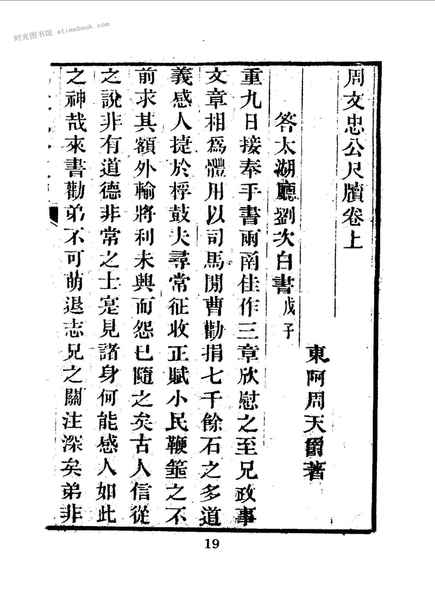 时光图书馆 etimebook.com
周文忠公尺牘卷上
東阿周天爵著
答太湖廳劉次白書戊子
重九日接奉手書兩函佳作三章欣慰之至兄政事
文章相為體用以司馬閒曹勸捐七千餘石之多道
義感人捷於桴鼓夫尋常征收正賦小民鞭箠之不
前求其額外輸將利未興而怨已隨之矣古人信從
之說非有道德非常之士寔見諸身何能感人如此
之神哉來書勸弟不可萌退志兄之關注深矣弟非
19